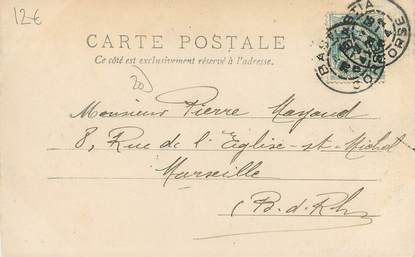 12€
CARTE POSTALE
Ce côté est exclusivement réservé à l'adresse.
20
Monsieur Pierre Mayoud
8, Rue de l'Eglise-st-Michel
Marseille
(B.-d.-Rh)
BASTIA
CORSE